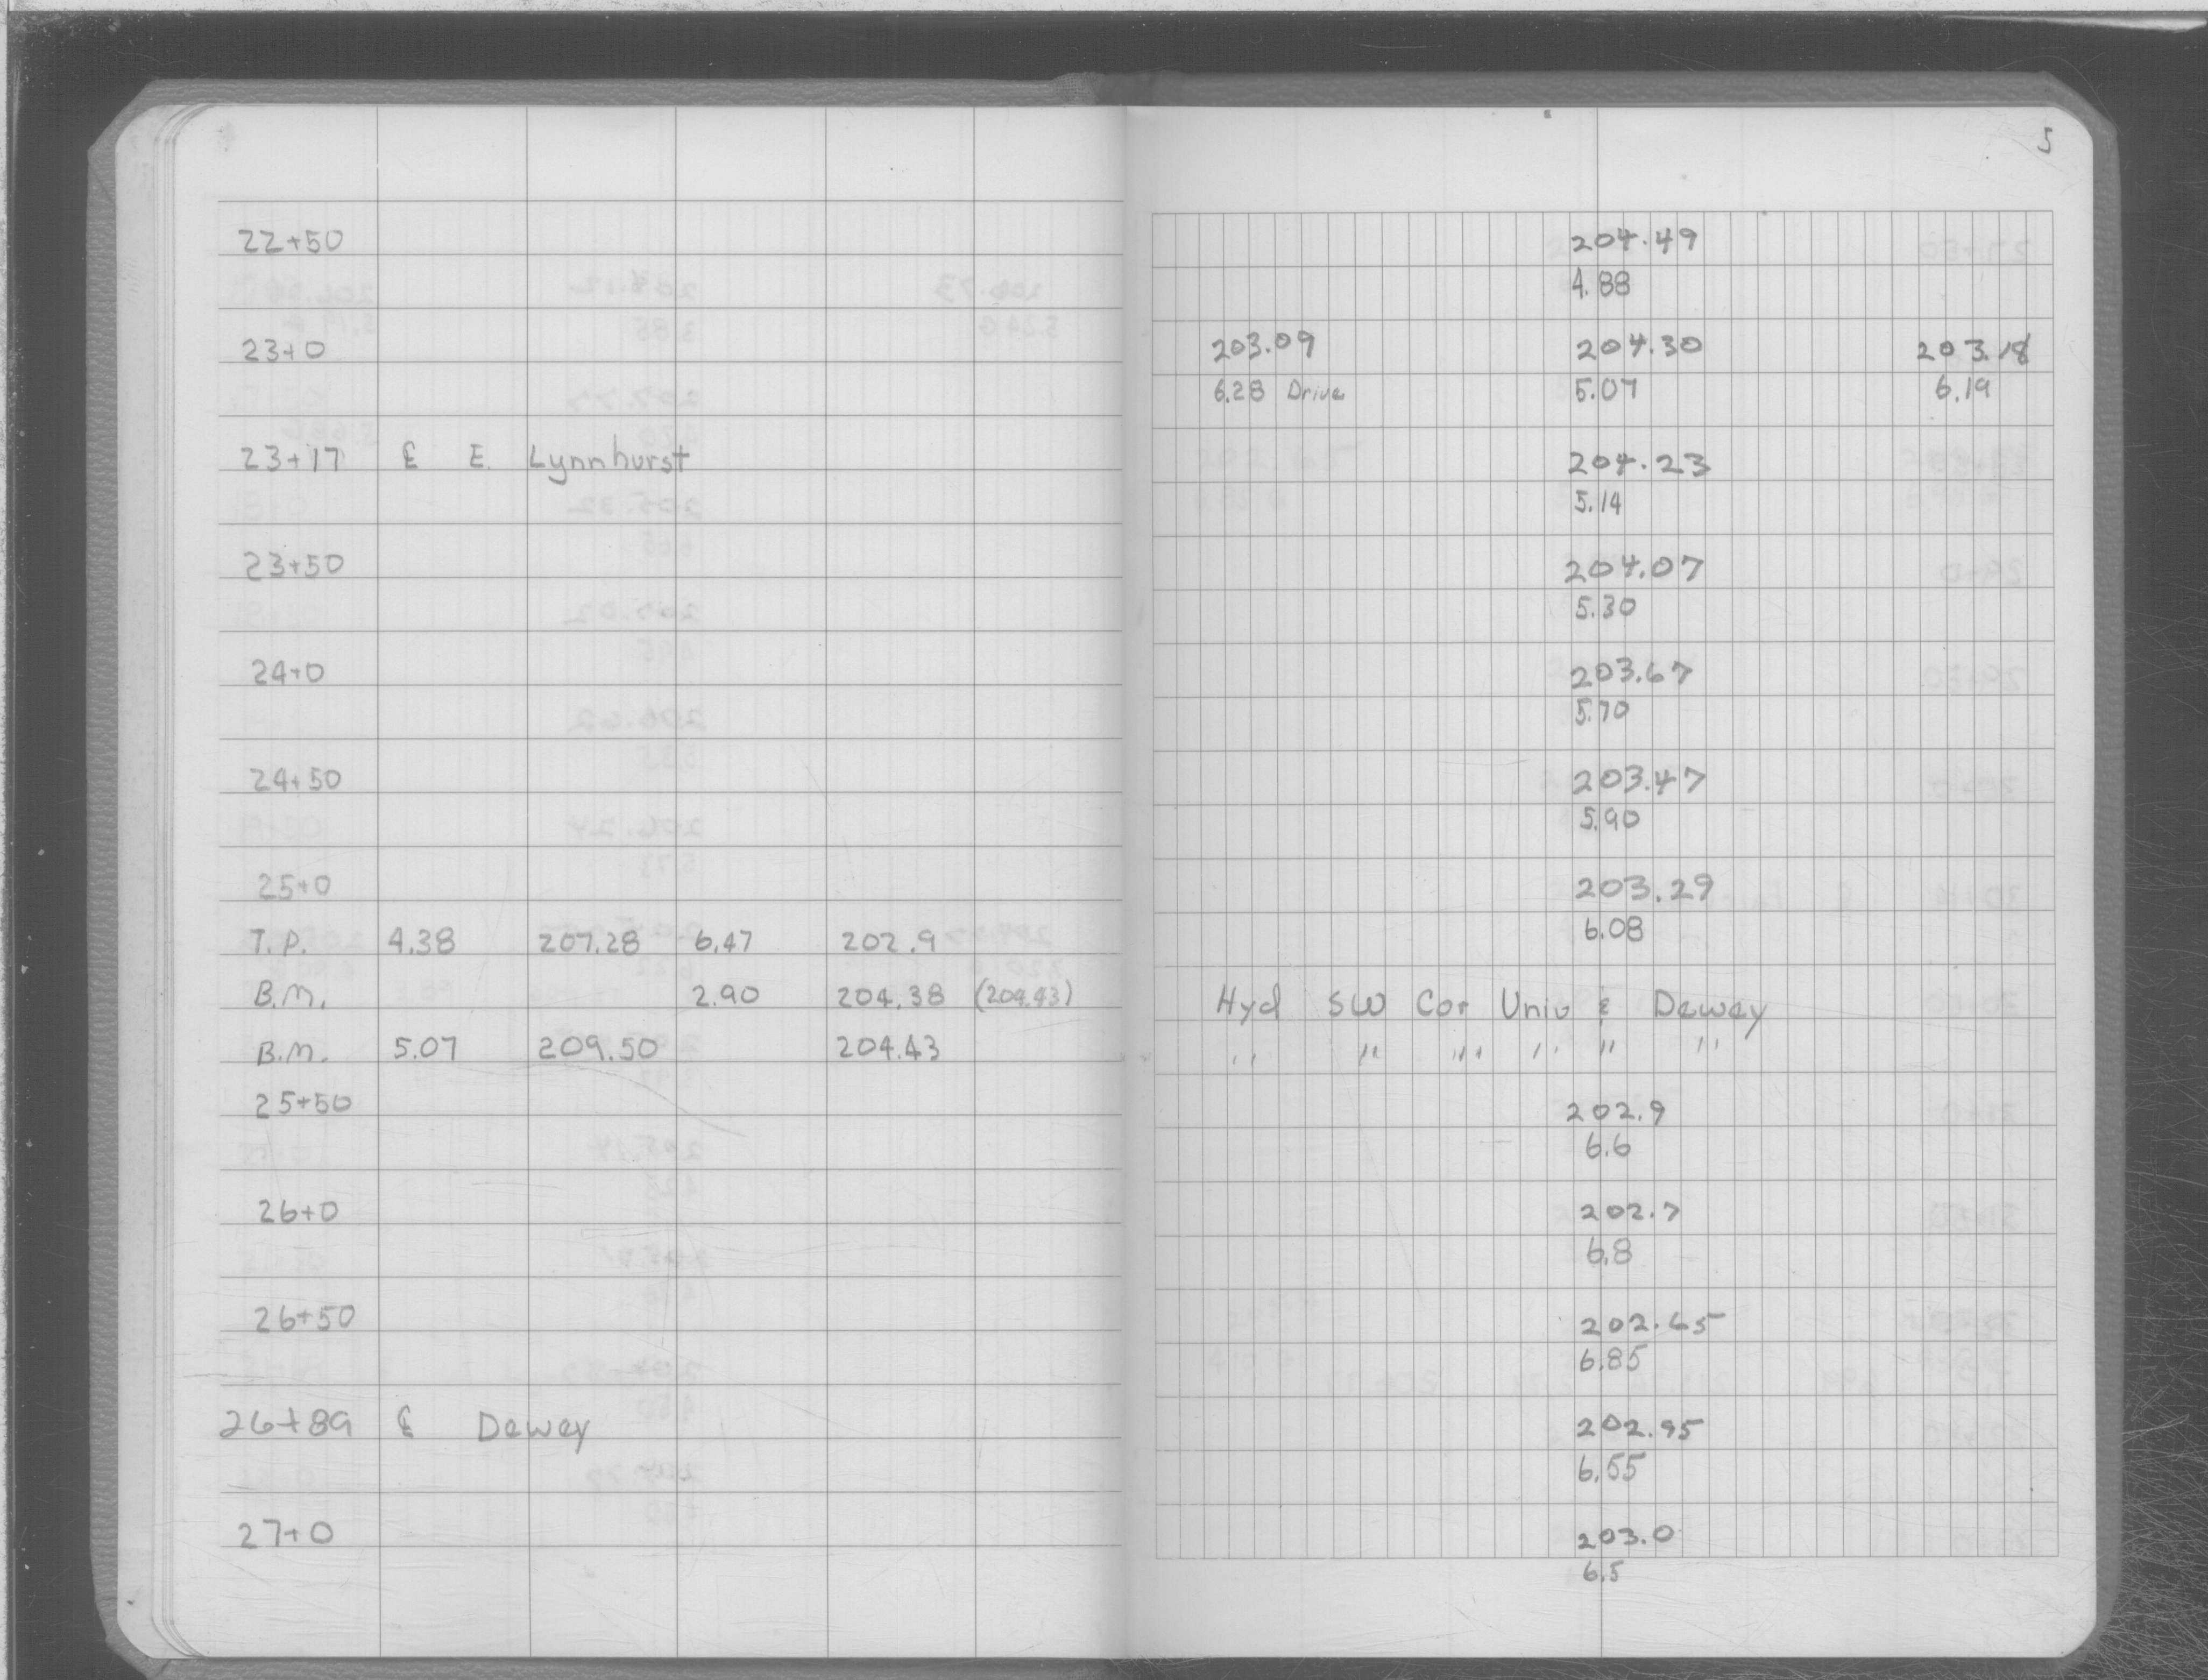 5
22+50 204.49
4.88
23+0 203.09 204.30 203.18
6.28 Drive 5.07 6.19
23+17 ℄ E. Lynnhurst 204.23
5.14
23+50 204.07
5.30
24+0 203.67
5.70
24+50 203.47
5.90
25+0 203.29
T.P. 4.38 207.28 6.47 202.9 6.08
B.M. 2.90 204.38 (204.43) Hyd SW Cor Univ & Dewey
B.M. 5.07 209.50 204.43 " " " " " "
25+50 202.9
6.6
26+0 202.7
6.8
26+50 202.65
6.85
26+89 ℄ Dewey 202.95
6.55
27+0 203.0
6.5